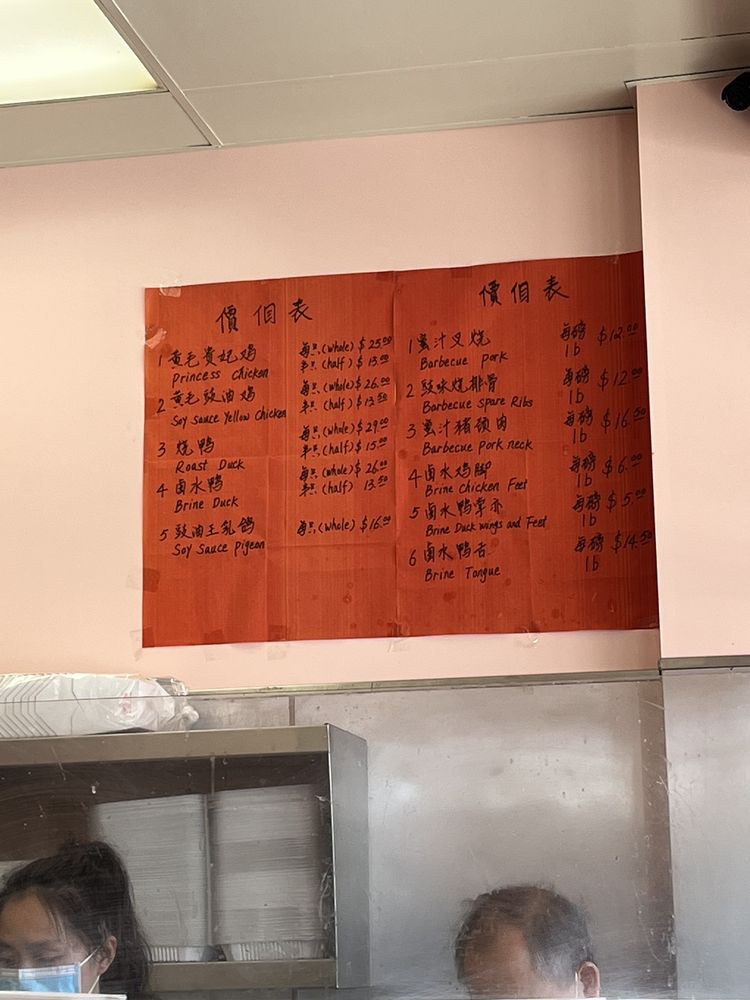 價目表
1 黄毛貴妃鸡 每只(whole) $25.00
princess chicken 半只(half) $13.00
2 黄毛豉油鸡 每只(whole) $26.00
Soy Sauce Yellow Chicken 半只(half) $13.50
3 烧鸭 每只(whole) $29.00
Roast Duck 半只(half) $15.00
4 卤水鸭 每只(whole) $26.00
Brine Duck 半只(half) 13.50
5 豉油王乳鸽 每只(whole) $16.00
Soy Sauce pigeon
價目表
1 蜜汁叉烧 每磅 $12.00
Barbecue pork 1b
2 豉味烧排骨 每磅 $12.00
Barbecue Spare Ribs 1b
3 蜜汁猪颈肉 每磅 $16.50
Barbecue Pork neck 1b
4 卤水鸡脚 每磅 $6.00
Brine Chicken Feet 1b
5 卤水鸭掌亦 每磅 $5.00
Brine Duck wings and Feet 1b
6 卤水鸭舌 每磅 $14.50
Brine Tongue 1b